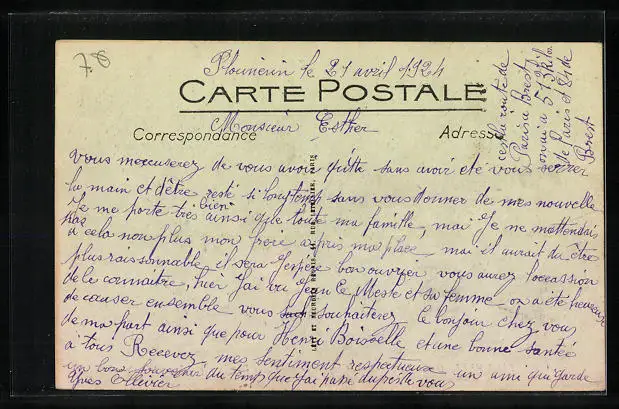 78
Plounérin le 21 avril 1924
CARTE POSTALE
Monsieur Esther
Correspondance
Adresse
vous mexcuserez de vous avoir quitté sans avoir été vous serrer
la main et dêtre resté si longtemps sans vous donner de mes nouvelle
Je me porte très bien ainsi que toute ma famille, mai Je ne mattendai
pas a cela non plus mon frere a pris ma place mai il aurait du être
plus raisonnable, il sera Jespère bon ouvrier vous aurez loccassion
de le connaitre, hier Jai vu Jean Le Mestr et sa femme on a été heureux
de causer ensemble vous souhaiterez le bonjoir chez vous
de ma part ainsi que pour Henri Boisselle et une bonne santée
a tous Recevez mes sentiment respectueux un ami qui garde
un bon souvenir du temps que Jai passé auprès de vous
Yves Ollivier
cest la route de
Paris a Brest
on ai a 513 kilom
de Paris et 84 de
Brest
PARIS